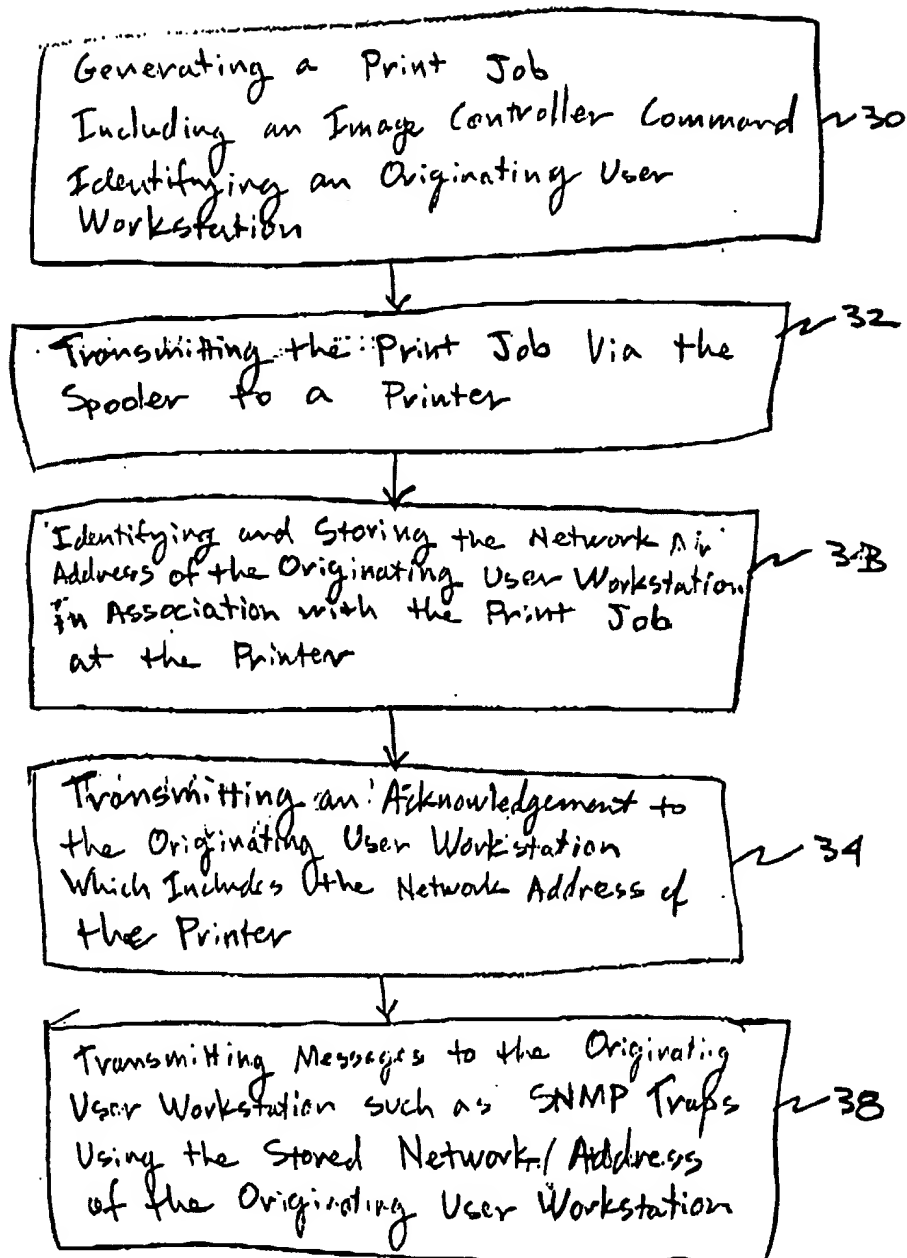 Generating a Print Job
Including an Image Controller Command
Identifying an Originating User
Workstation
30
Transmitting the Print Job Via the
Spooler to a Printer
32
Identifying and Storing the Network
Address of the Originating User Workstation
in Association with the Print Job
at the Printer
3B
Transmitting an Acknowledgement to
the Originating User Workstation
Which Includes the Network Address of
the Printer
34
Transmitting Messages to the Originatig
User Workstation such as SNMP Traps
Using the Stored Network Address
of the Originating User Workstation
38